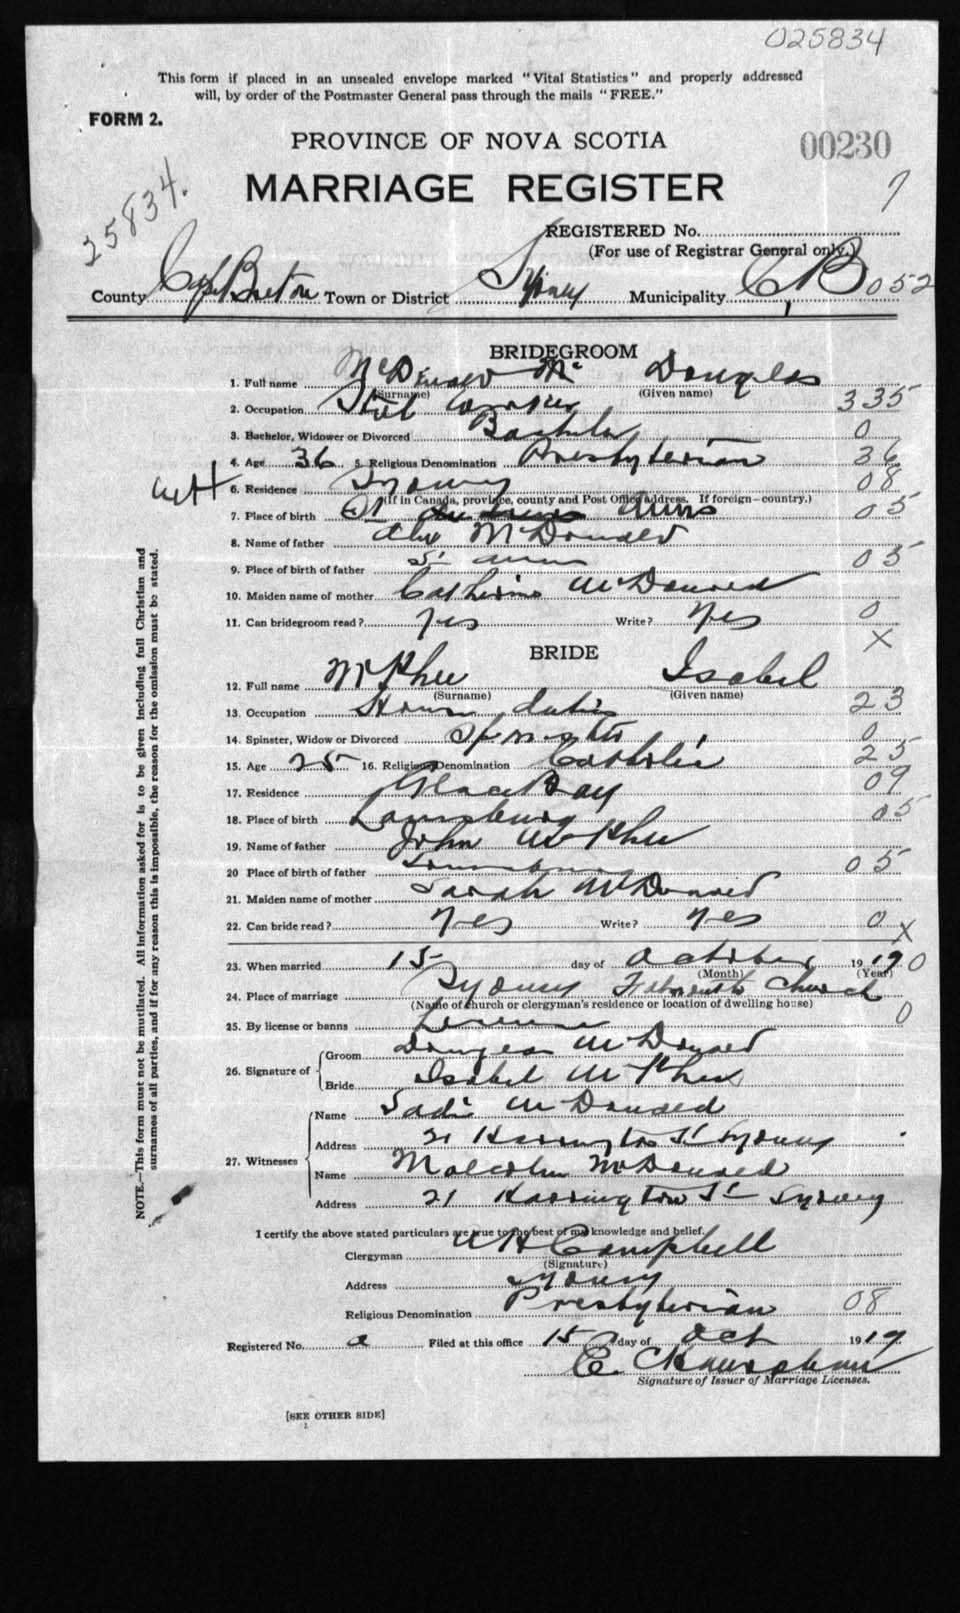 025834
This form if placed in an unsealed envelope marked "Vital Statistics" and properly addressed
will, by order of the Postmaster General pass through the mails "FREE."
FORM 2.
PROVINCE OF NOVA SCOTIA
00230
MARRIAGE REGISTER
25834.
REGISTERED No.
(For use of Registrar General only.)
County Cape Breton Town or District Sydney Municipality C, B 052
BRIDEGROOM
1. Full name McDonald Mc Douglas
(Surname) (Given name)
2. Occupation Steel Worker 335
3. Bachelor, Widower or Divorced Bachelor 0
4. Age 36 5. Religious Denomination Presbyterian 36
6. Residence Sydney 08
(If in Canada, province, county and Post Office address. If foreign—country.)
7. Place of birth St Anns 05
8. Name of father Alex McDonald
9. Place of birth of father St Anns 05
10. Maiden name of mother Catherine McDonald
11. Can bridegroom read? Yes Write? Yes 0
X
BRIDE
12. Full name McPhee Isabel
(Surname) (Given name)
13. Occupation House duties 23
14. Spinster, Widow or Divorced Spinster 0
15. Age 25 16. Religious Denomination Catholic 25
17. Residence Glace Bay 09
18. Place of birth Louisburg 05
19. Name of father John McPhee
20 Place of birth of father Louisburg 05
21. Maiden name of mother Sarah McDonald
22. Can bride read? Yes Write? Yes 0 X
23. When married 15 day of October 1919 0
(Month) (Year)
24. Place of marriage Sydney Falmouth Church
(Name of church or clergyman's residence or location of dwelling house)
25. By license or banns License 0
26. Signature of
Groom Douglas McDonald
Bride Isabel McPhee
27. Witnesses
Name Sadie McDonald
Address 21 Harrington St Sydney
Name Malcolm McDonald
Address 21 Harrington St Sydney
I certify the above stated particulars are true to the best of my knowledge and belief.
Clergyman Campbell
(Signature)
Address Sydney
Religious Denomination Presbyterian 08
Registered No. a Filed at this office 15 day of Oct 1919
Signature of Issuer of Marriage Licenses.
[SEE OTHER SIDE]
NOTE.—This form must not be mutilated. All information asked for is to be given including full Christian and
surnames of all parties, and if for any reason this is impossible, the reason for the omission must be stated.